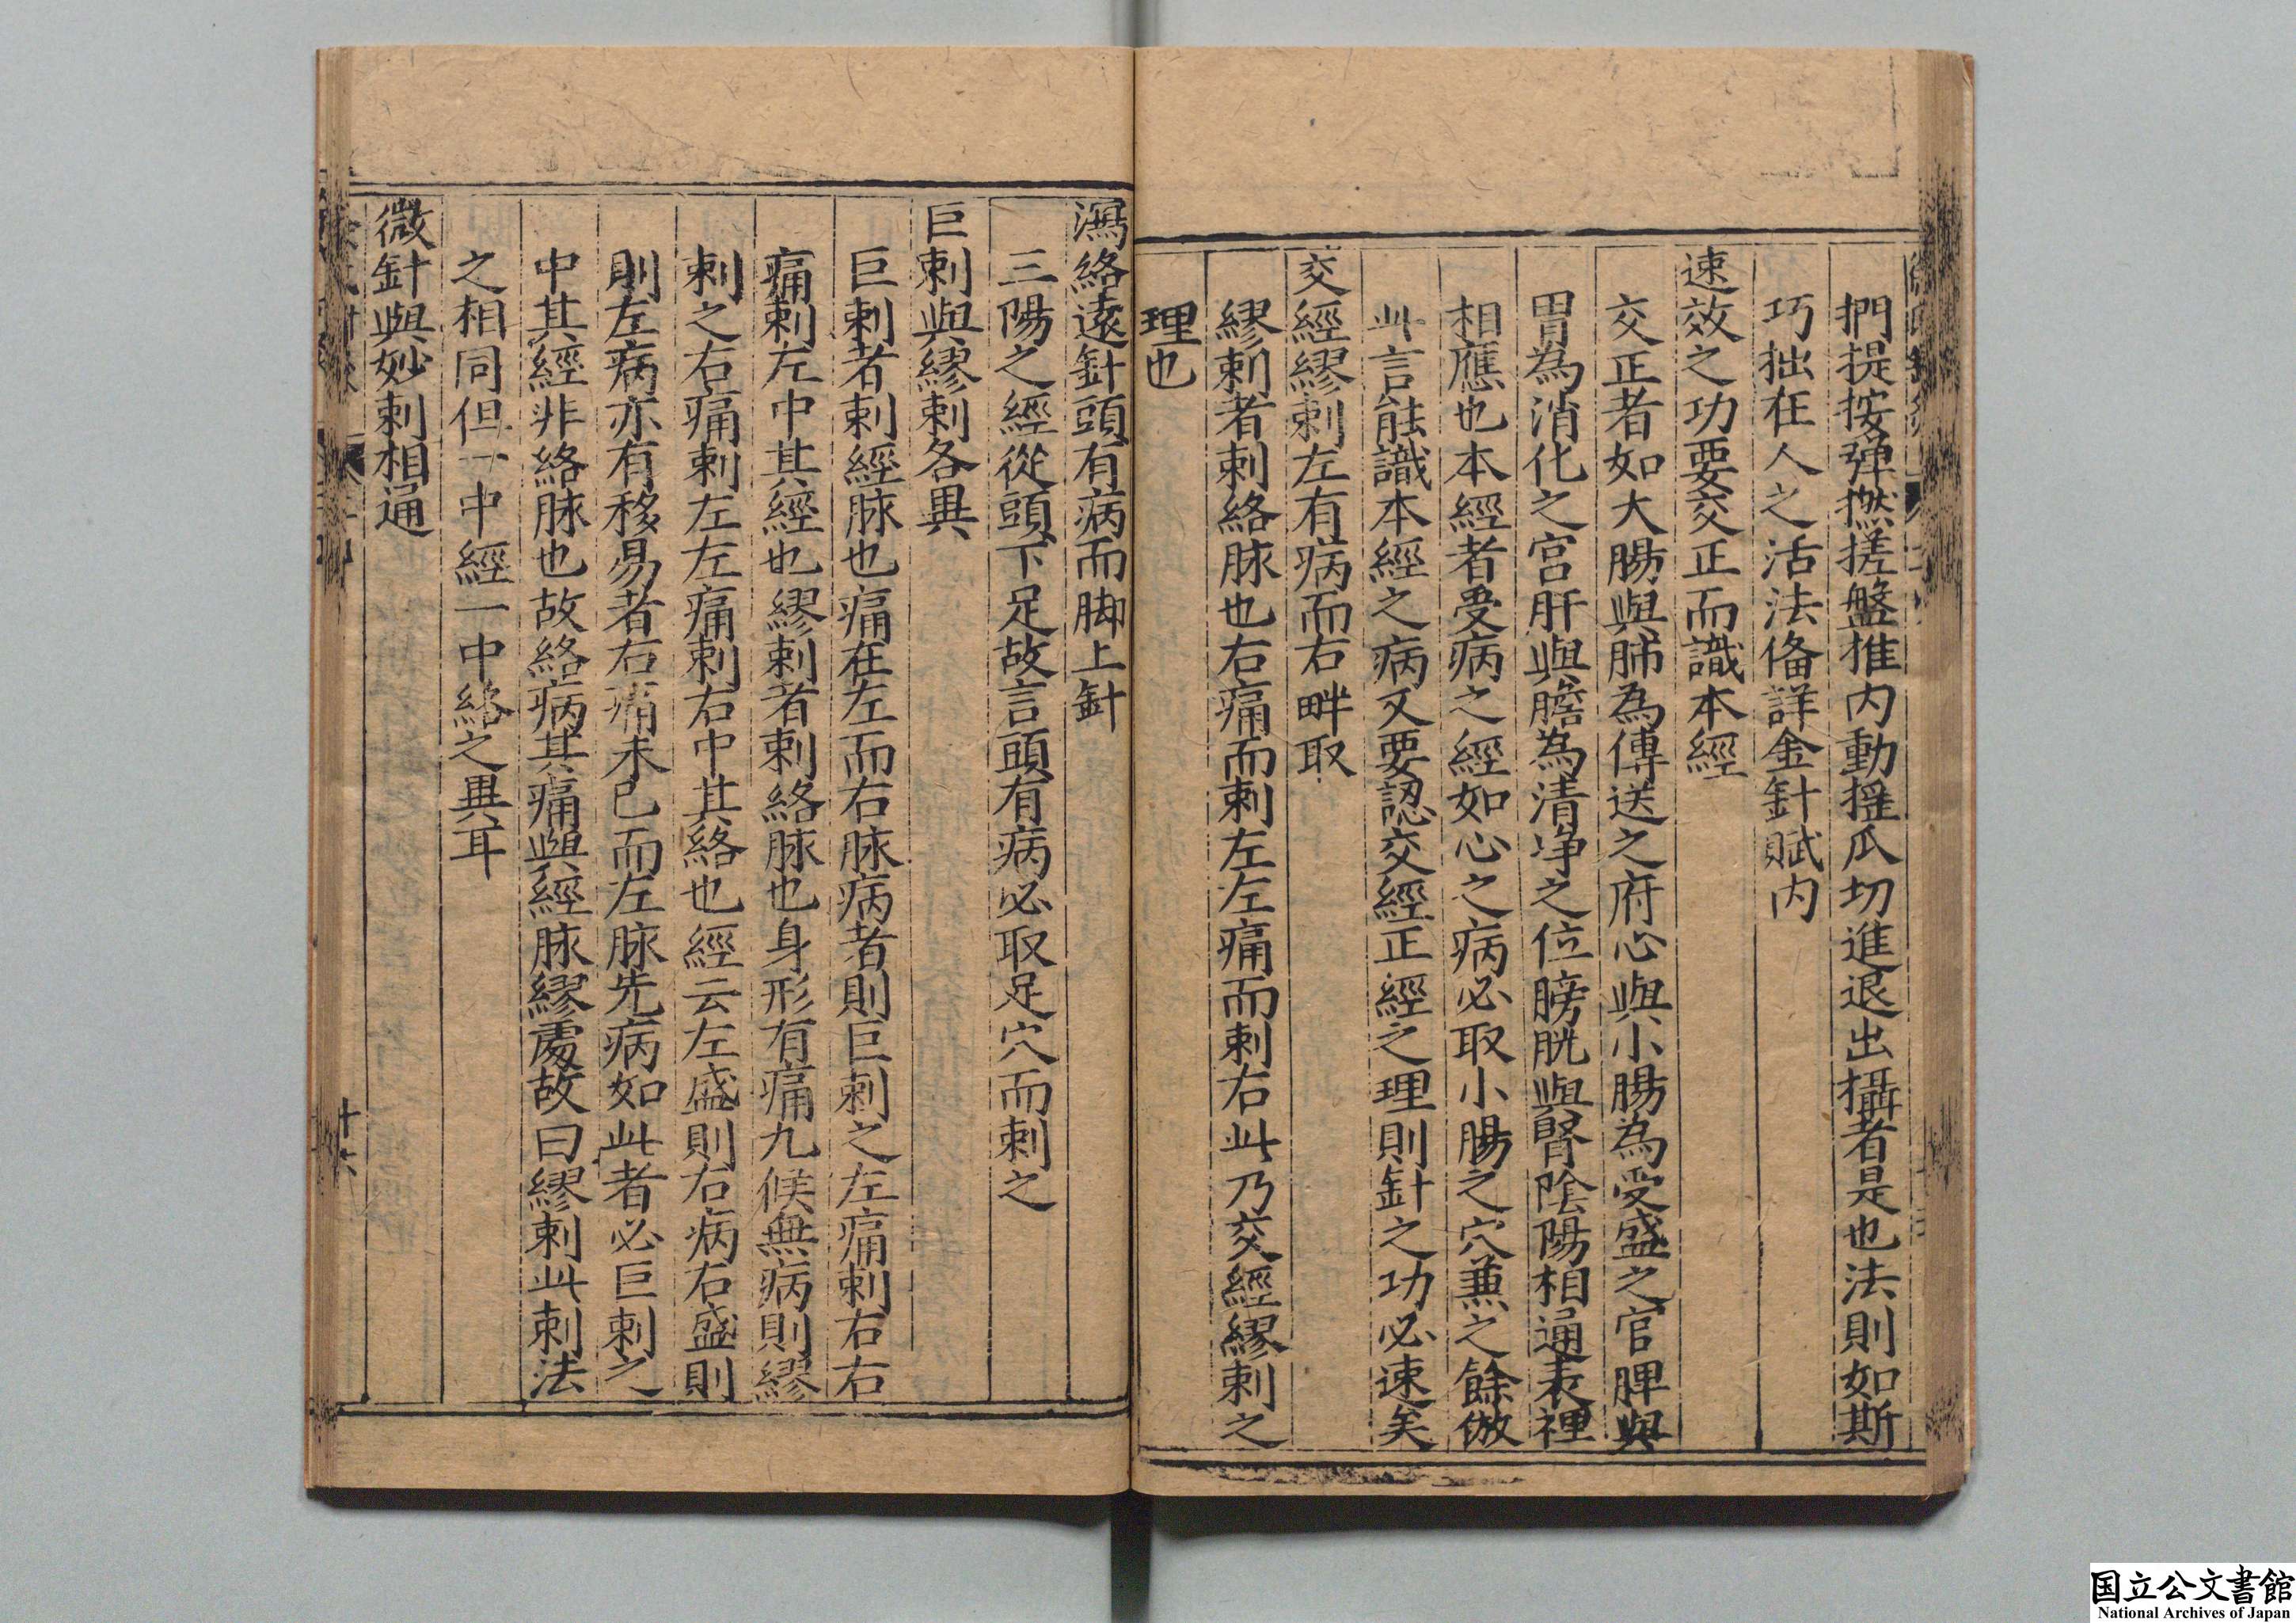 捫提按彈撚搓盤推内動揺爪切進退出攝者是也法則如斯
巧拙在人之活法俻詳金針賦内
速效之功要交正而識本經
交正者如大腸與肺為傳送之府心與小腸為受盛之官脾與
胃為消化之宮肝與膽為清浄之位膀胱與腎陰陽相通表裡
相應也本經者受病之經如心之病必取小腸之穴兼之餘倣
此言能識本經之病又要認交經正經之理則針之功必速矣
交經繆刺左有病而右畔取
繆刺者刺絡脉也右痛而刺左左痛而刺右此乃交經繆刺之
理也
瀉絡遠針頭有病而脚上針
三陽之經從頭下足故言頭有病必取足穴而刺之
巨刺與繆刺各異
巨刺者刺經脉也痛在左而右脉病者則巨刺之左痛刺右右
痛刺左中其經也繆刺者刺絡脉也身形有痛九候無病則繆
刺之右痛刺左左痛刺右中其絡也經云左盛則右病右盛則
則左病亦有移易者右痛未已而左脉先病如此者必巨刺之
中其經非絡脉也故絡病其痛與經脉繆處故曰繆刺此刺法
之相同但一中經一中絡之異耳
微針與妙刺相通
十六
国立公文書館
National Archives of Japan